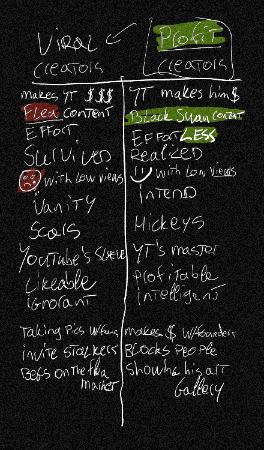 VIRAL
CREATORS
Profit
CREATORS
makes YT $$$
Flea CONTENT
EFFORT
Survived
with low views
Vanity
Scars
YouTube's Slave
Likeable
ignorant
Taking Pics w/fans
invite stalkers
Begs on the flea
market
YT makes him $
Black Swan content
EFFORTLESS
Realized
with low views
intend
Mickeys
YT's master
Profitable
intelligent
makes $ w/founders
Blocks people
Show his art
Gallery